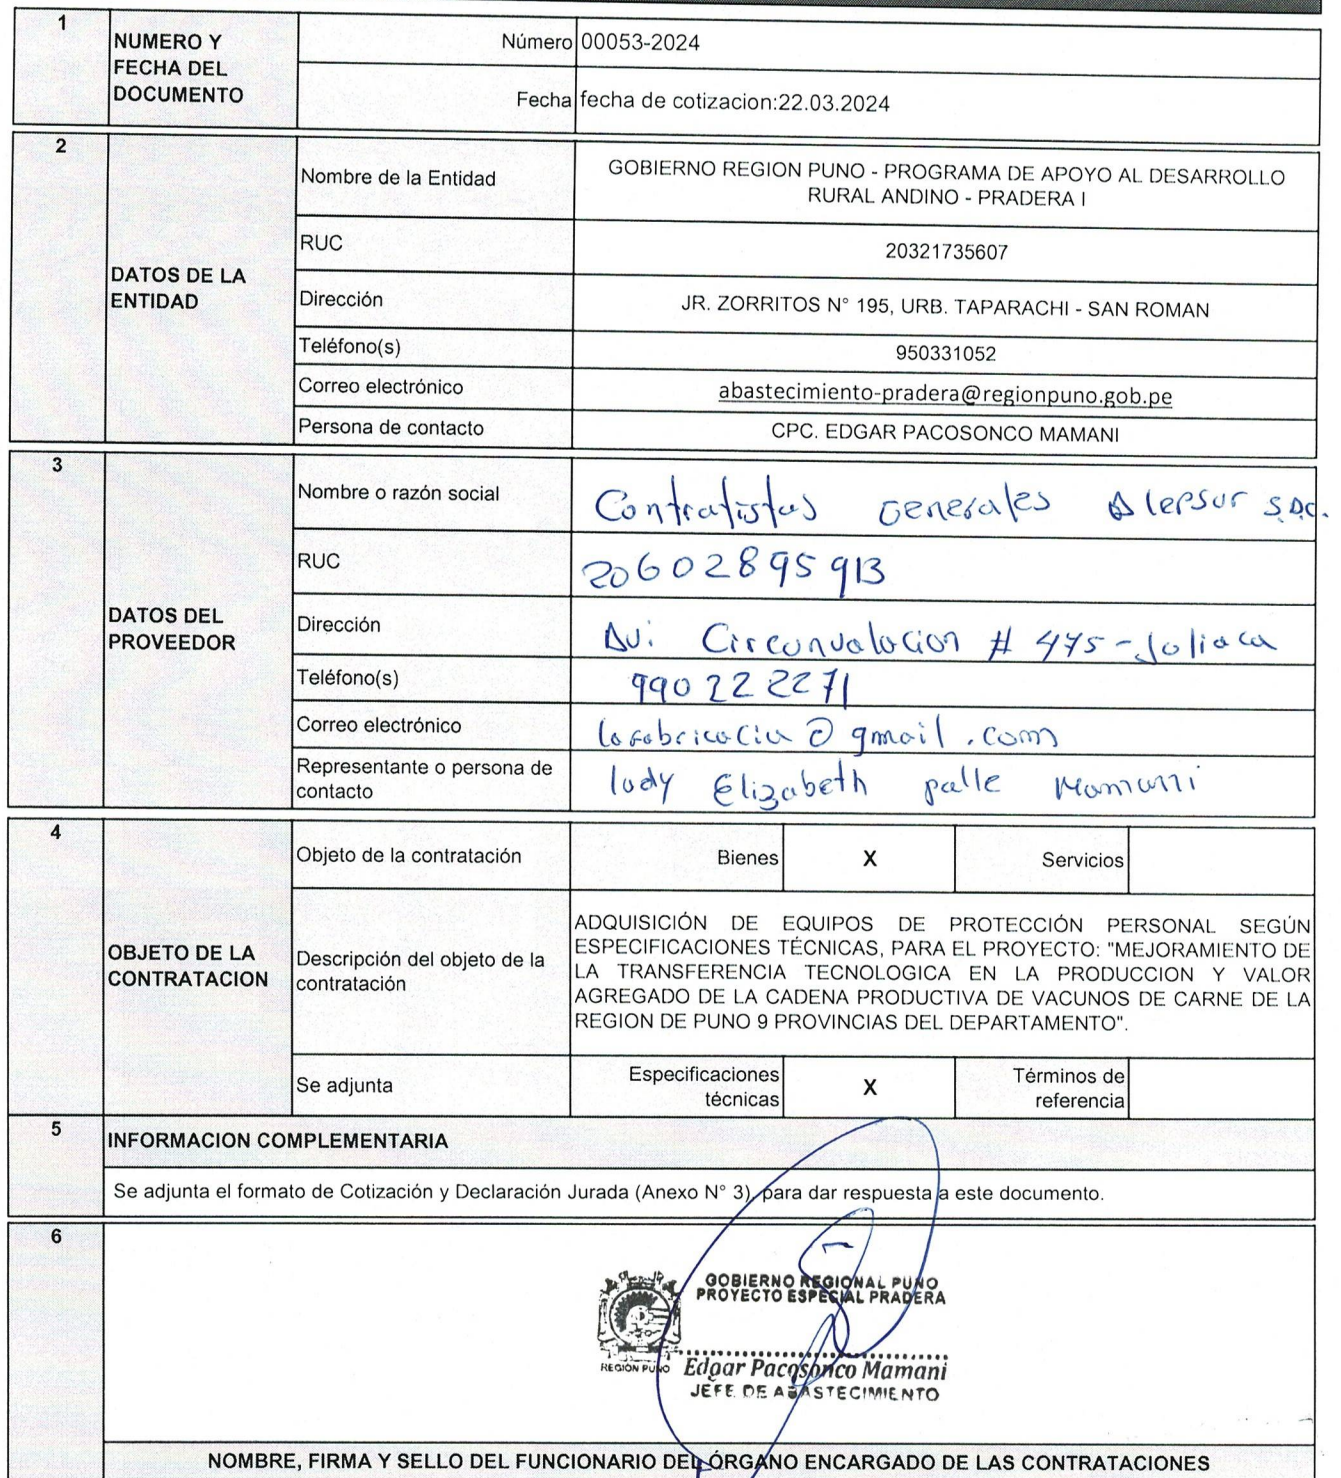 1
NUMERO Y
FECHA DEL
DOCUMENTO
Número 00053-2024
Fecha fecha de cotizacion:22.03.2024
2
DATOS DE LA
ENTIDAD
Nombre de la Entidad
GOBIERNO REGION PUNO - PROGRAMA DE APOYO AL DESARROLLO
RURAL ANDINO - PRADERA I
RUC 20321735607
Dirección JR. ZORRITOS N° 195, URB. TAPARACHI - SAN ROMAN
Teléfono(s) 950331052
Correo electrónico abastecimiento-pradera@regionpuno.gob.pe
Persona de contacto CPC. EDGAR PACOSONCO MAMANI
3
DATOS DEL
PROVEEDOR
Nombre o razón social Contratistas Generales Alepsur S.A.C.
RUC 20602895913
Dirección Av. Circunvalacion # 475 - Juliaca
Teléfono(s) 990222271
Correo electrónico @gmail.com
Representante o persona de
contacto
Elizabeth Mamani
4
OBJETO DE LA
CONTRATACION
Objeto de la contratación Bienes X Servicios
Descripción del objeto de la
contratación
ADQUISICIÓN DE EQUIPOS DE PROTECCIÓN PERSONAL SEGÚN
ESPECIFICACIONES TÉCNICAS, PARA EL PROYECTO: "MEJORAMIENTO DE
LA TRANSFERENCIA TECNOLOGICA EN LA PRODUCCION Y VALOR
AGREGADO DE LA CADENA PRODUCTIVA DE VACUNOS DE CARNE DE LA
REGION DE PUNO 9 PROVINCIAS DEL DEPARTAMENTO".
Se adjunta
Especificaciones
técnicas
X
Términos de
referencia
5
INFORMACION COMPLEMENTARIA
Se adjunta el formato de Cotización y Declaración Jurada (Anexo N° 3), para dar respuesta a este documento.
6
GOBIERNO REGIONAL PUNO
PROYECTO ESPECIAL PRADERA
REGIÓN PUNO
Edgar Pacosonco Mamani
JEFE DE ABASTECIMIENTO
NOMBRE, FIRMA Y SELLO DEL FUNCIONARIO DEL ÓRGANO ENCARGADO DE LAS CONTRATACIONES